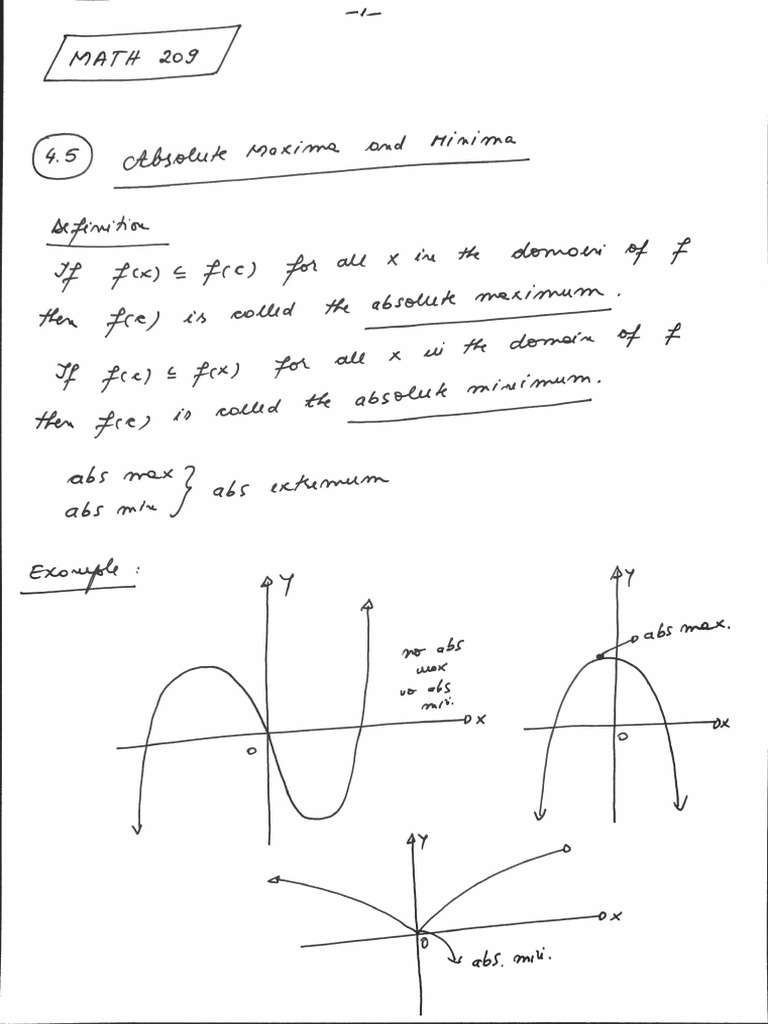 -1-
MATH 209
4.5 Absolute Maxima and Minima
Definition
If f(x) ≤ f(c) for all x in the domain of f
then f(c) is called the absolute maximum.
If f(c) ≤ f(x) for all x in the domain of f
then f(c) is called the absolute minimum.
abs max
abs min } abs extremum
Example:
y
no abs
max
no abs
min.
x
0
y
abs max.
x
0
y
x
0
abs. min.